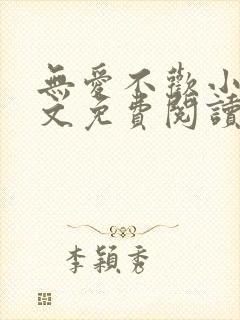 無愛不歡小
文免費閱讀
李穎秀